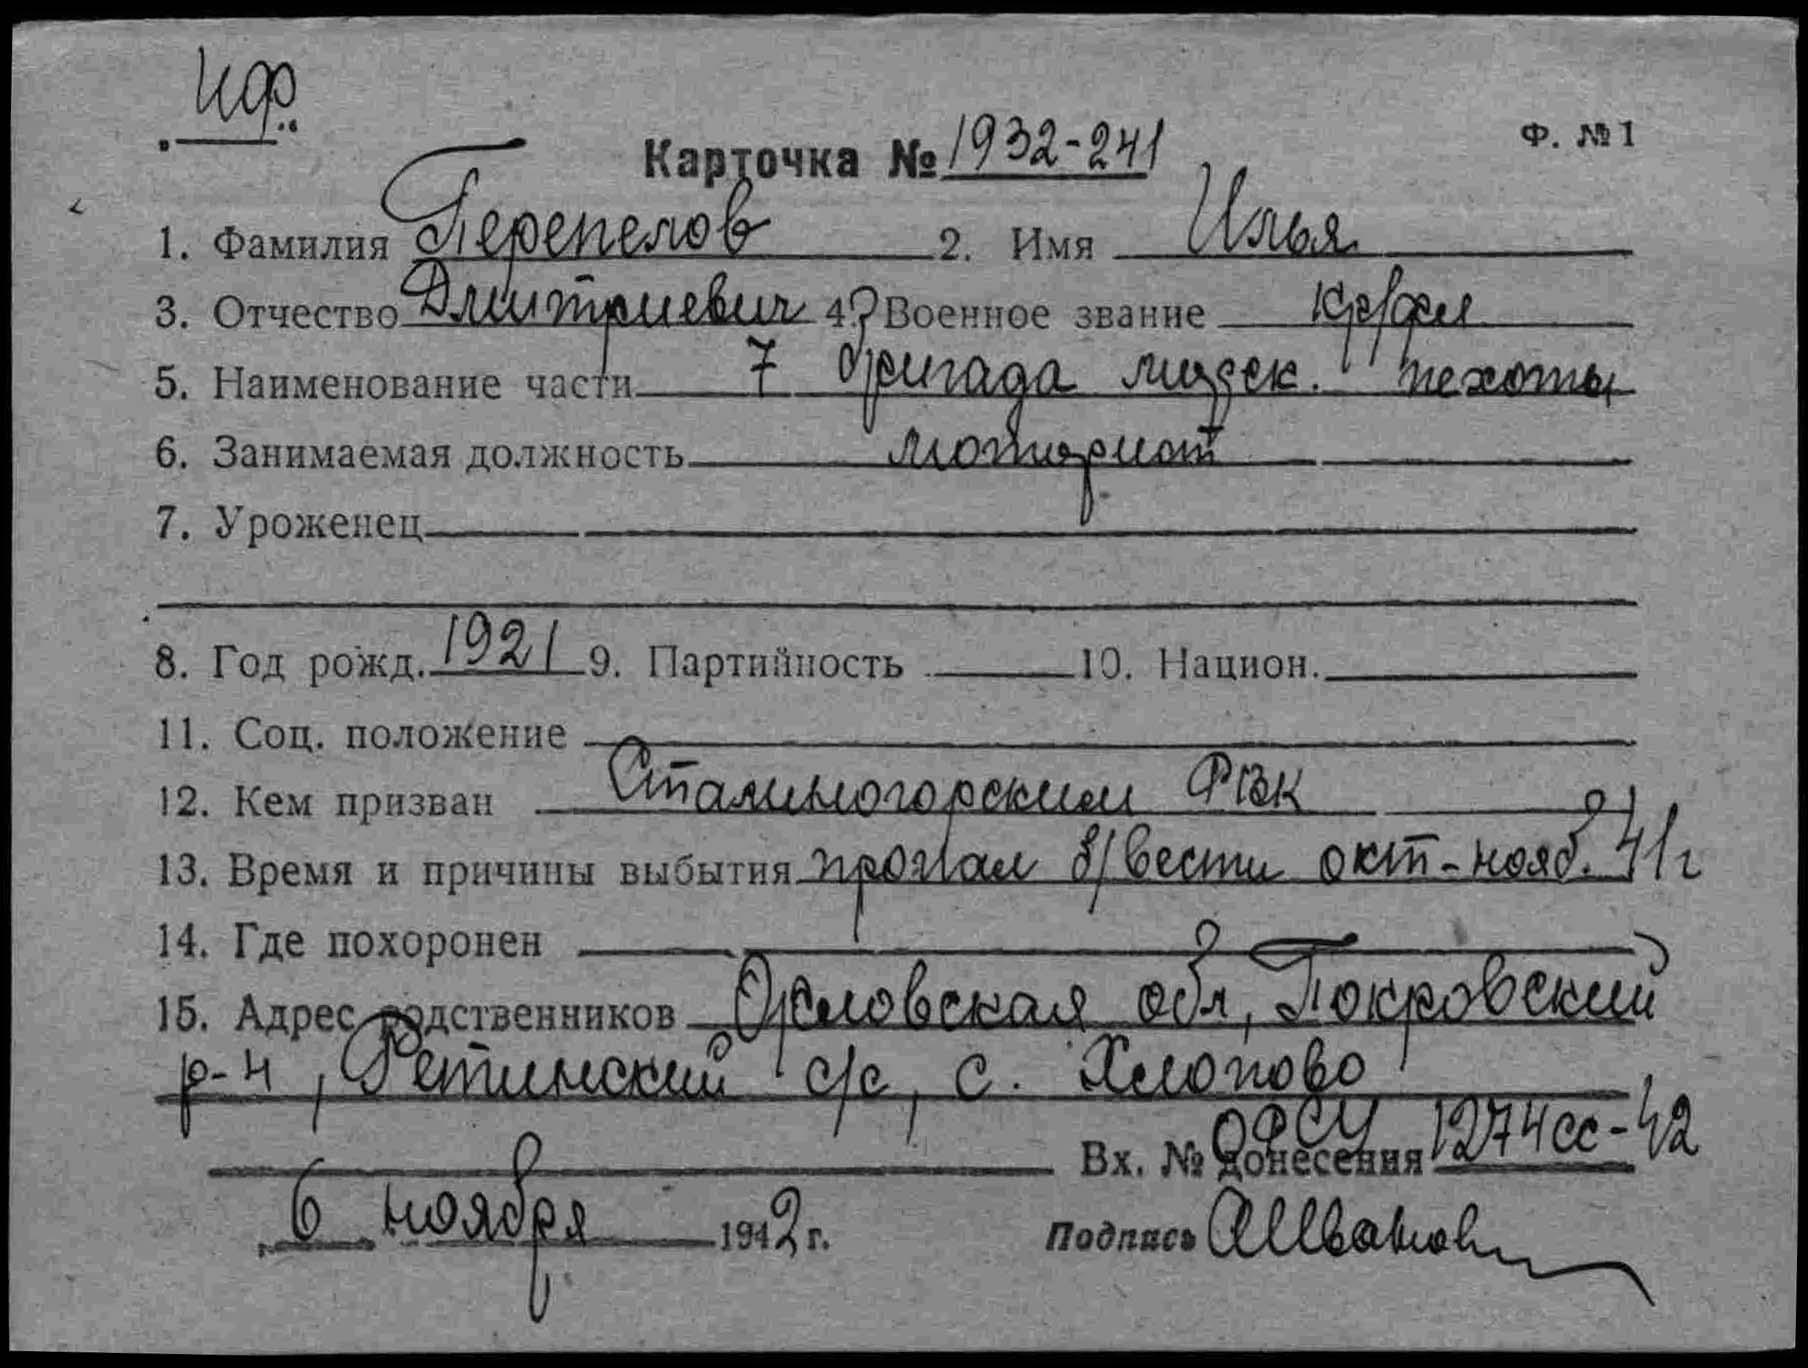 ИФ
Ф. № 1
Карточка № 1932-241
1. Фамилия Перепелов 2. Имя Илья
3. Отчество Дмитриевич 4. Военное звание кр/фл
5. Наименование части 7 бригада морск. пехоты
6. Занимаемая должность моторист
7. Уроженец
8. Год рожд. 1921 9. Партийность 10. Национ.
11. Соц. положение
12. Кем призван Сталиногорским РВК
13. Время и причины выбытия пропал б/вести окт-нояб. 41г
14. Где похоронен
15. Адрес родственников Орловская обл, Покровский
р-н, Ретинский с/с, с. Хлопово
Вх. № донесения ОФСУ 1274сс-42
6 ноября 1942 г. Подпись